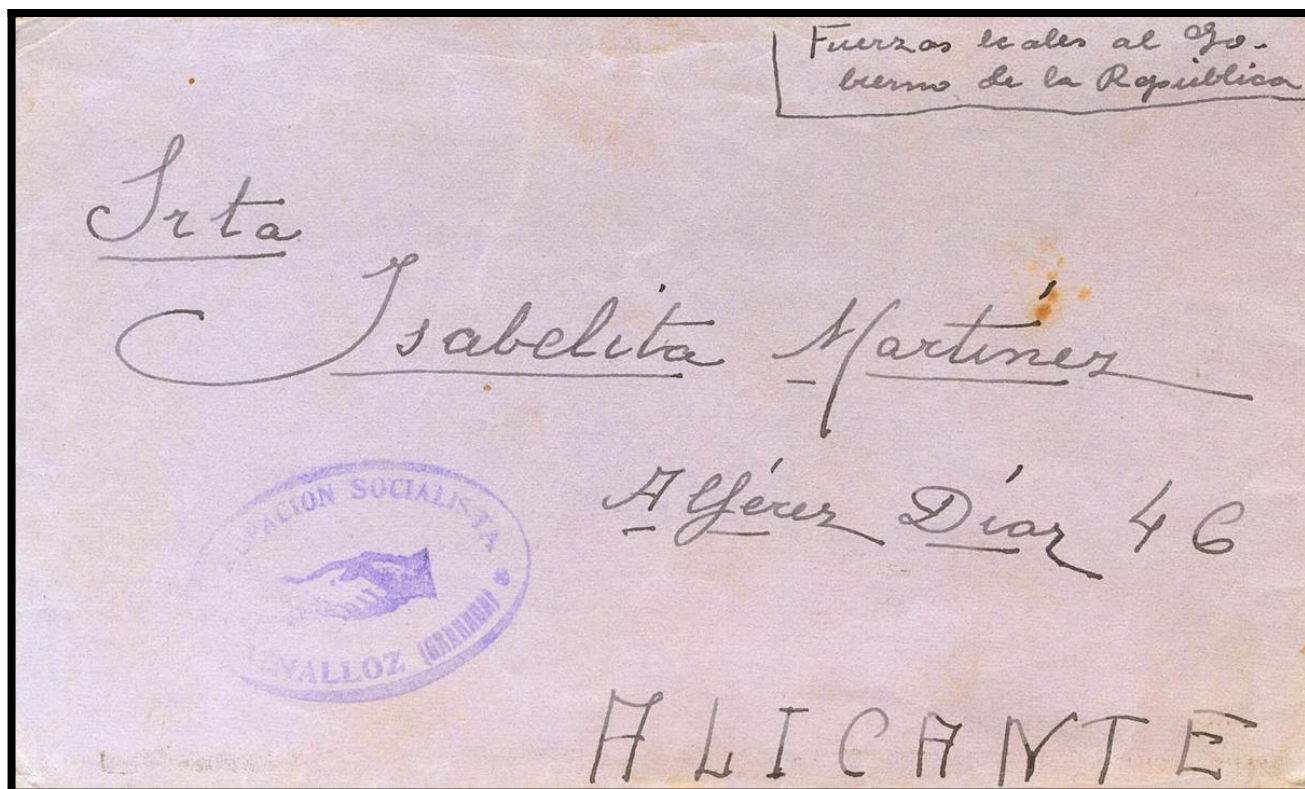 Fuerzas leales al Go-
bierno de la República
Srta
Isabelita Martínez
Alférez Díaz 46
UPACION SOCIALISTA
IZNALLOZ (GRANADA)
ALICANTE